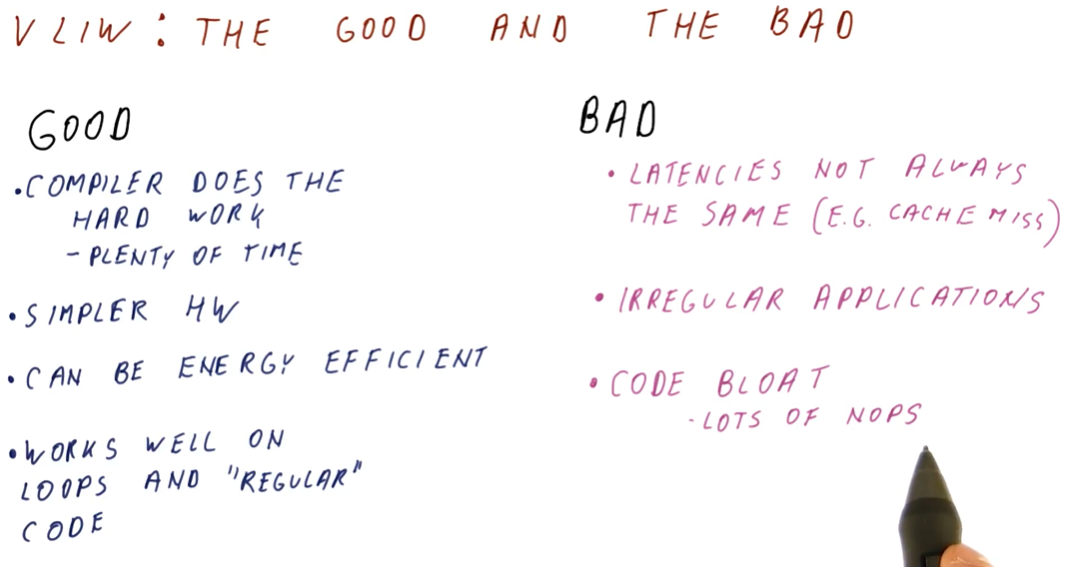 VLIW: THE GOOD AND THE BAD
GOOD
•COMPILER DOES THE
HARD WORK
- PLENTY OF TIME
•SIMPLER HW
•CAN BE ENERGY EFFICIENT
•WORKS WELL ON
LOOPS AND "REGULAR"
CODE
BAD
•LATENCIES NOT ALWAYS
THE SAME (E.G. CACHE MISS)
•IRREGULAR APPLICATIONS
•CODE BLOAT
-LOTS OF NOPS